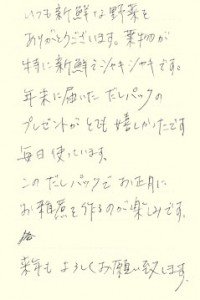 いつも新鮮な野菜を
ありがとうございます。葉物が
特に新鮮でシャキシャキです。
年末に届いただしパックの
プレゼントがとても嬉しかったです
毎日使っています。
このだしパックでお正月に
お雑煮を作るのが楽しみです。
来年もよろしくお願い致します。